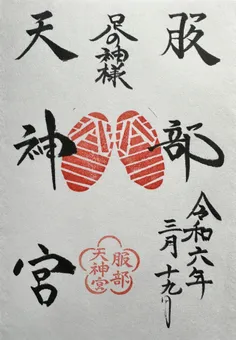 服部
足の神様
天神宮
令和六年
三月十九日
服部
天神宮